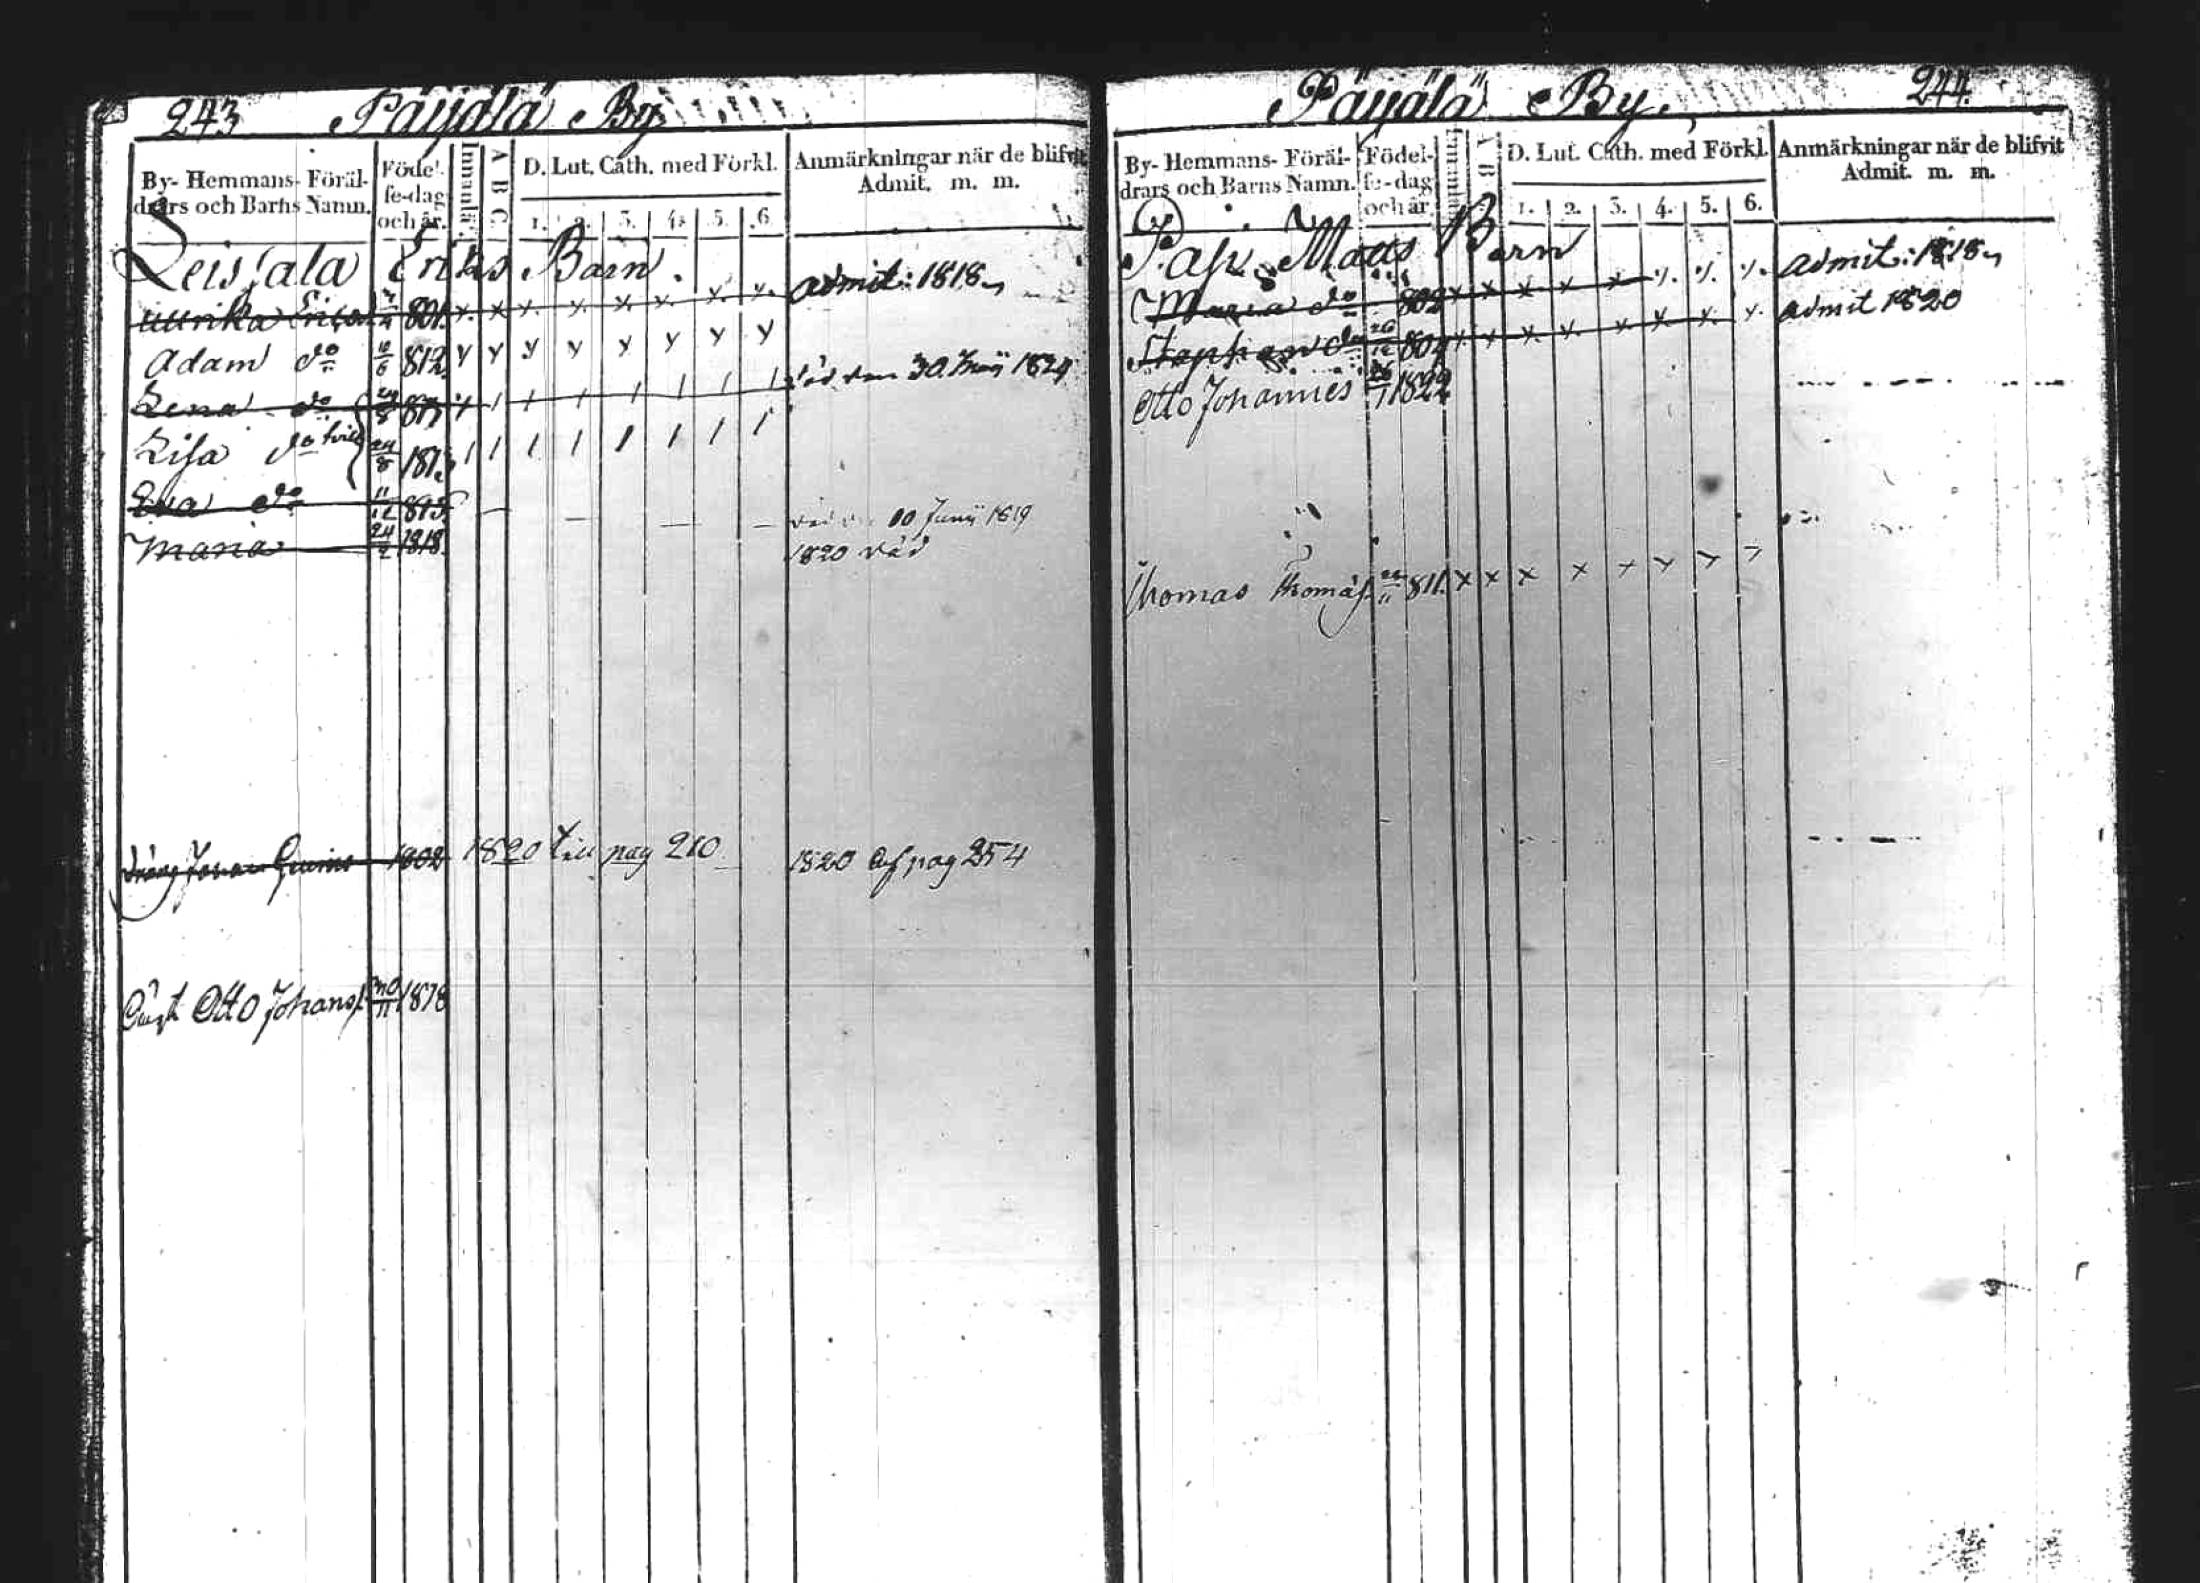 243 Päijälä By
By- Hemmans- Föräl-
drars och Barns Namn.
Födel-
se-dag
och år.
Innanläs.
A B C
D. Lut. Cath. med Förkl.
1. 2. 3. 4. 5. 6.
Anmärkningar när de blifvit
Admit. m. m.
Leisjala Eriks Barn.
801. x. x x. x. x. x. x. x. admit: 1818
Adam do 10/6 812. y y y y y y y y
Lena do 24/8 813 1 1 1 1 1 1 1 död den 30 1824
Lisa do tvill 24/8 1813 1 1 1 1 1 1 1 1
Eva do 11/12 815 — — — — 10 Junii 1819
Maria 24/2 1818 1820 död
dräng 1802 1820 till pag 210 1820 af pag 254
Otto Johans 11 1818
Päijälä By. 244.
By- Hemmans- Föräl-
drars och Barns Namn.
Födel-
se-dag
och år.
Innanläs.
A B
D. Lut. Cath. med Förkl.
1. 2. 3. 4. 5. 6.
Anmärkningar när de blifvit
Admit. m. m.
Matts Barn
Maria do 802 x x x x x y. y. y. admit: 1818
Stephan do 26/12 804 x. x. x. x. x. x. x. x. admit 1820
Otto Johannes 26/1 1822
Thomas Thomæs. 11 811. x x x x x y y y